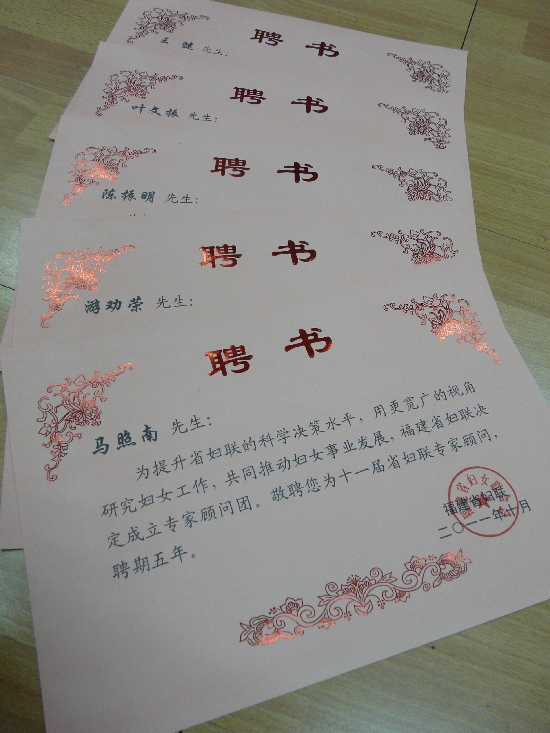 聘书
王健 先生：
聘书
叶文振 先生：
聘书
陈振明 先生：
聘书
游劝荣 先生：
聘书
马照南 先生：
为提升省妇联的科学决策水平，用更宽广的视角
研究妇女工作，共同推动妇女事业发展，福建省妇联决
定成立专家顾问团。敬聘您为十一届省妇联专家顾问，
聘期五年。
福建省妇联
二〇一一年十月